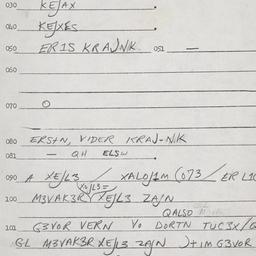 030 KEJAX
040 KEJXES
050 ERIS KRAJNIK 051 —
060
070 O
080 ERSAN, VIDER KRAJ-NIK
081 — QH ELSW
090 A XEJL3 / XALOJ1M (073/ER L1
XOJL3=
100 M3VAK3R XEJL3 ZAJN
QALSO
101 G3VOR VERN VO DORTN TUC3X/
GL M3VAK3R XEJL3 ZAJN )+1M G3VOR